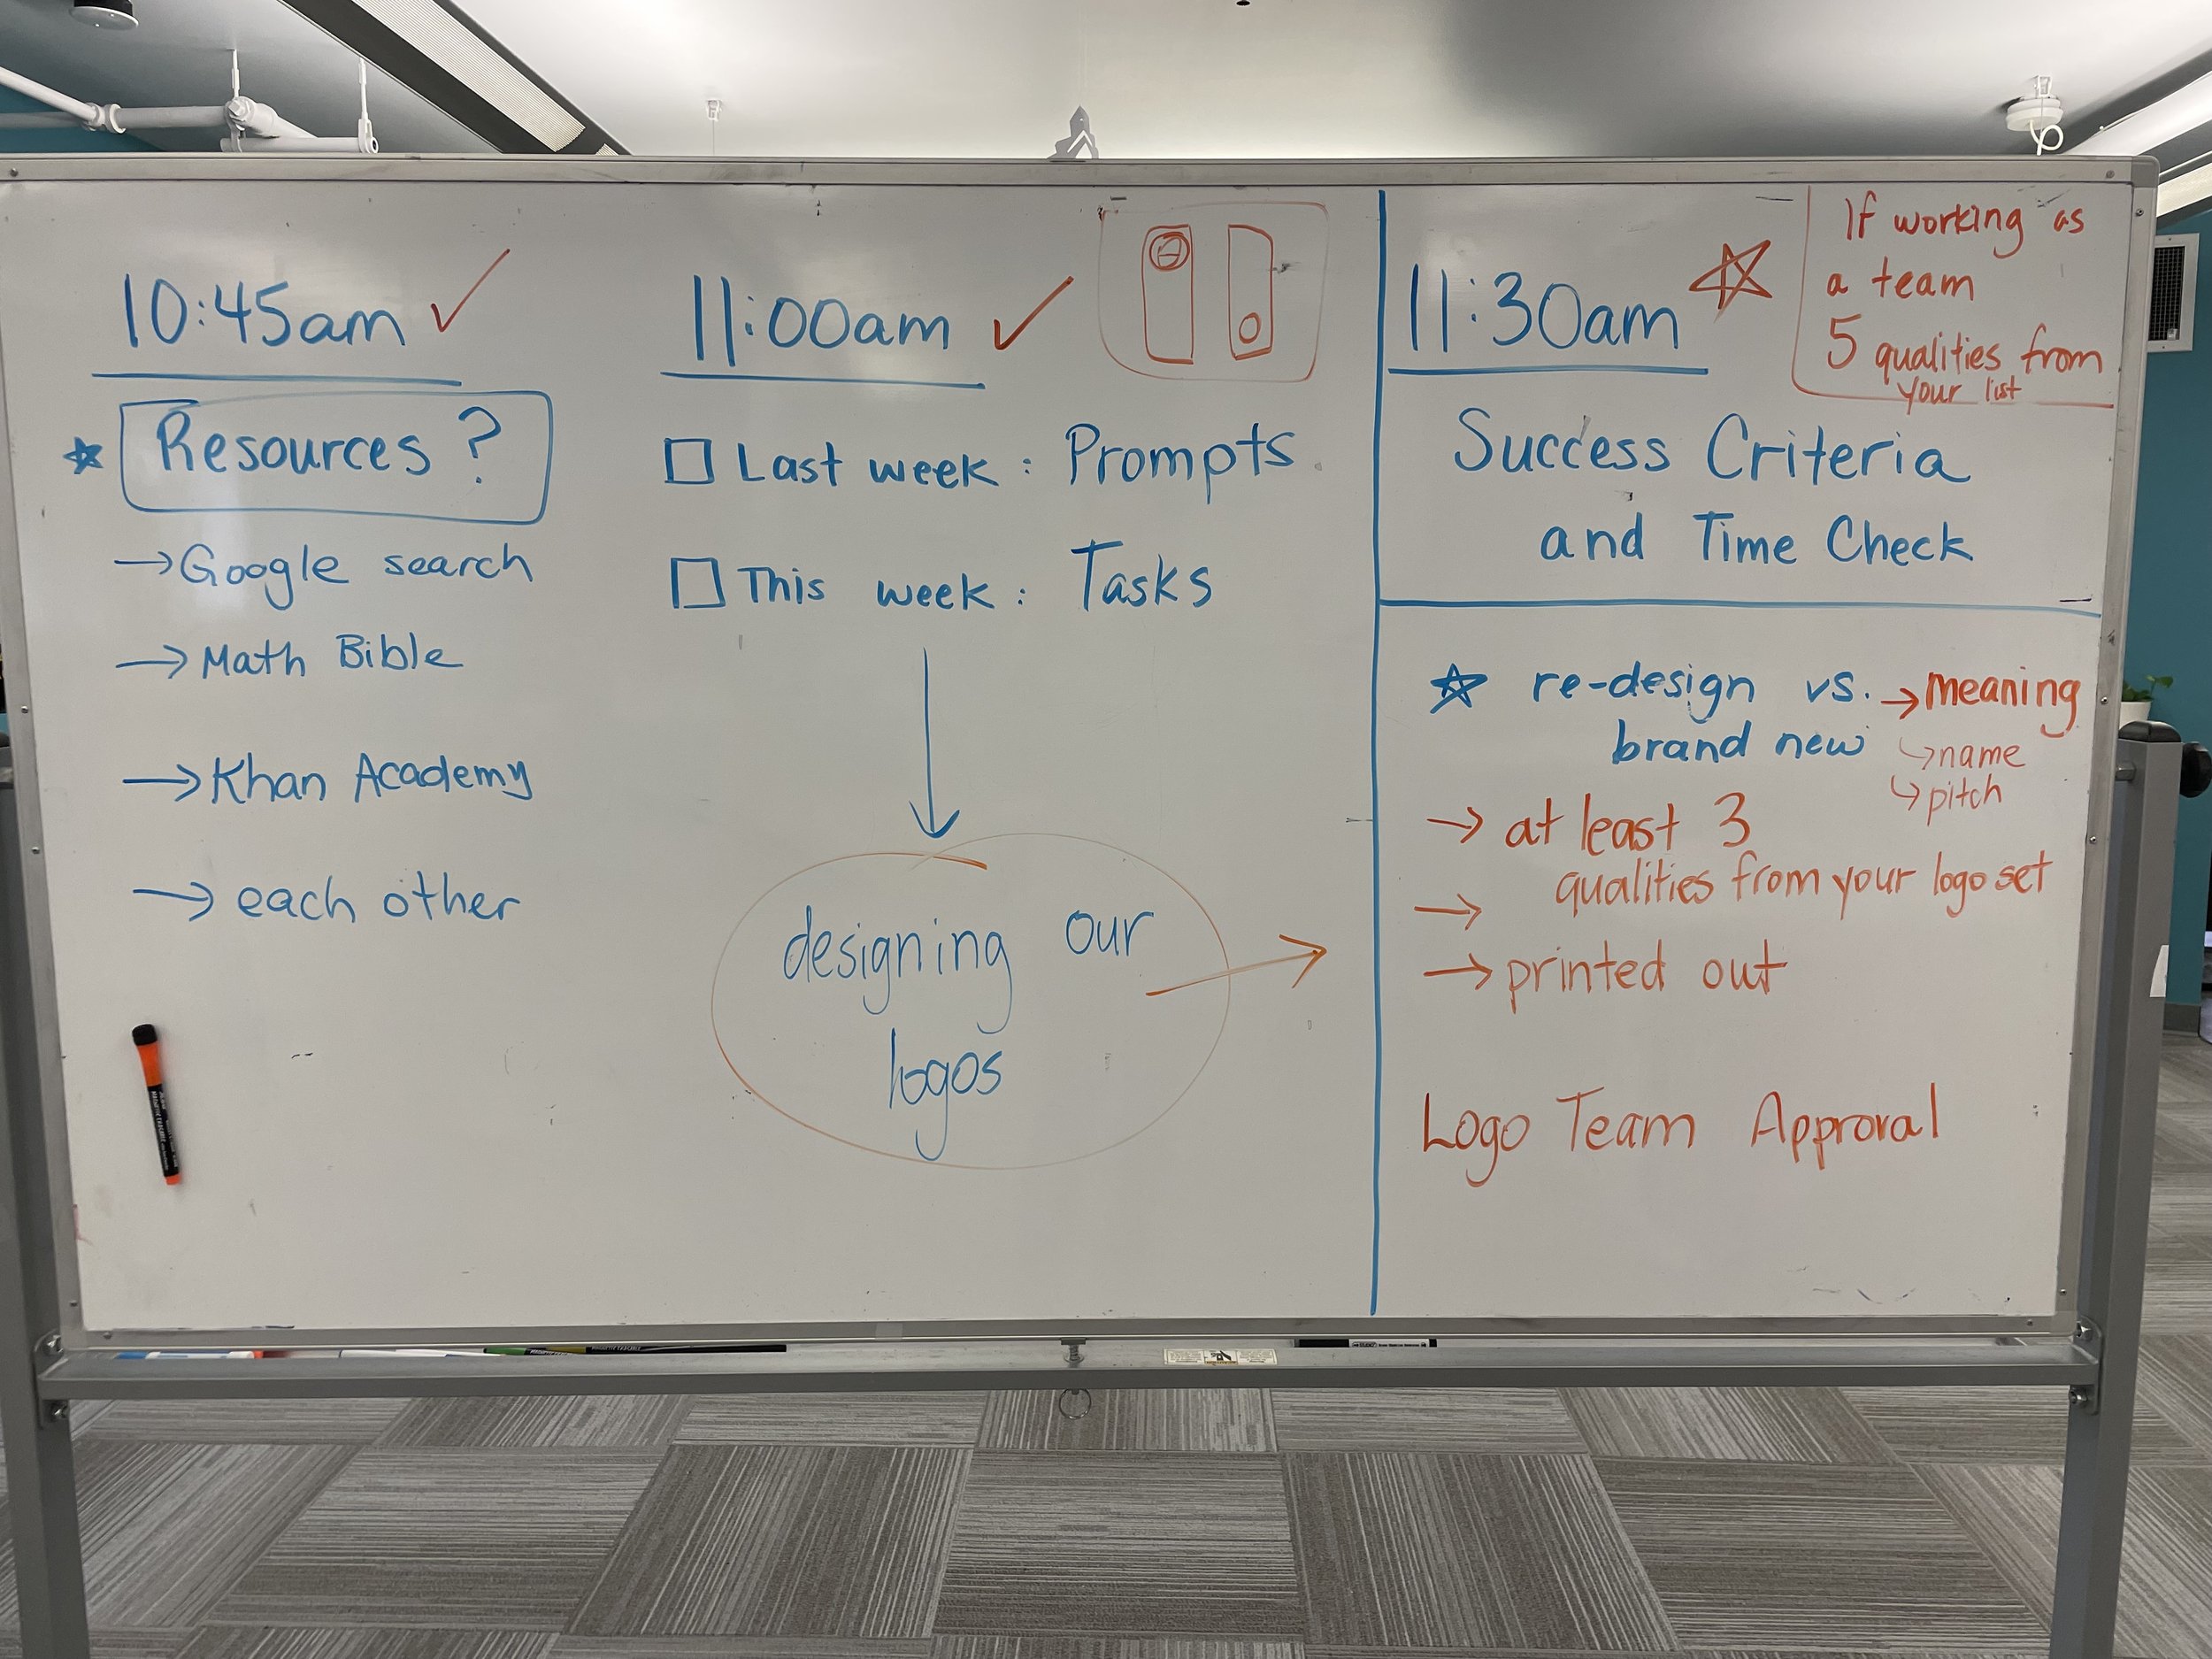 10:45am
Resources ?
→Google search
→Math Bible
→Khan Academy
→each other
11:00am
Last week : Prompts
This week : Tasks
designing our
logos
11:30am
If working as
a team
5 qualities from
your list
Success Criteria
and Time Check
re-design vs. →meaning
brand new
↪name
↪pitch
→ at least 3
→ qualities from your logo set
→printed out
Logo Team Approval